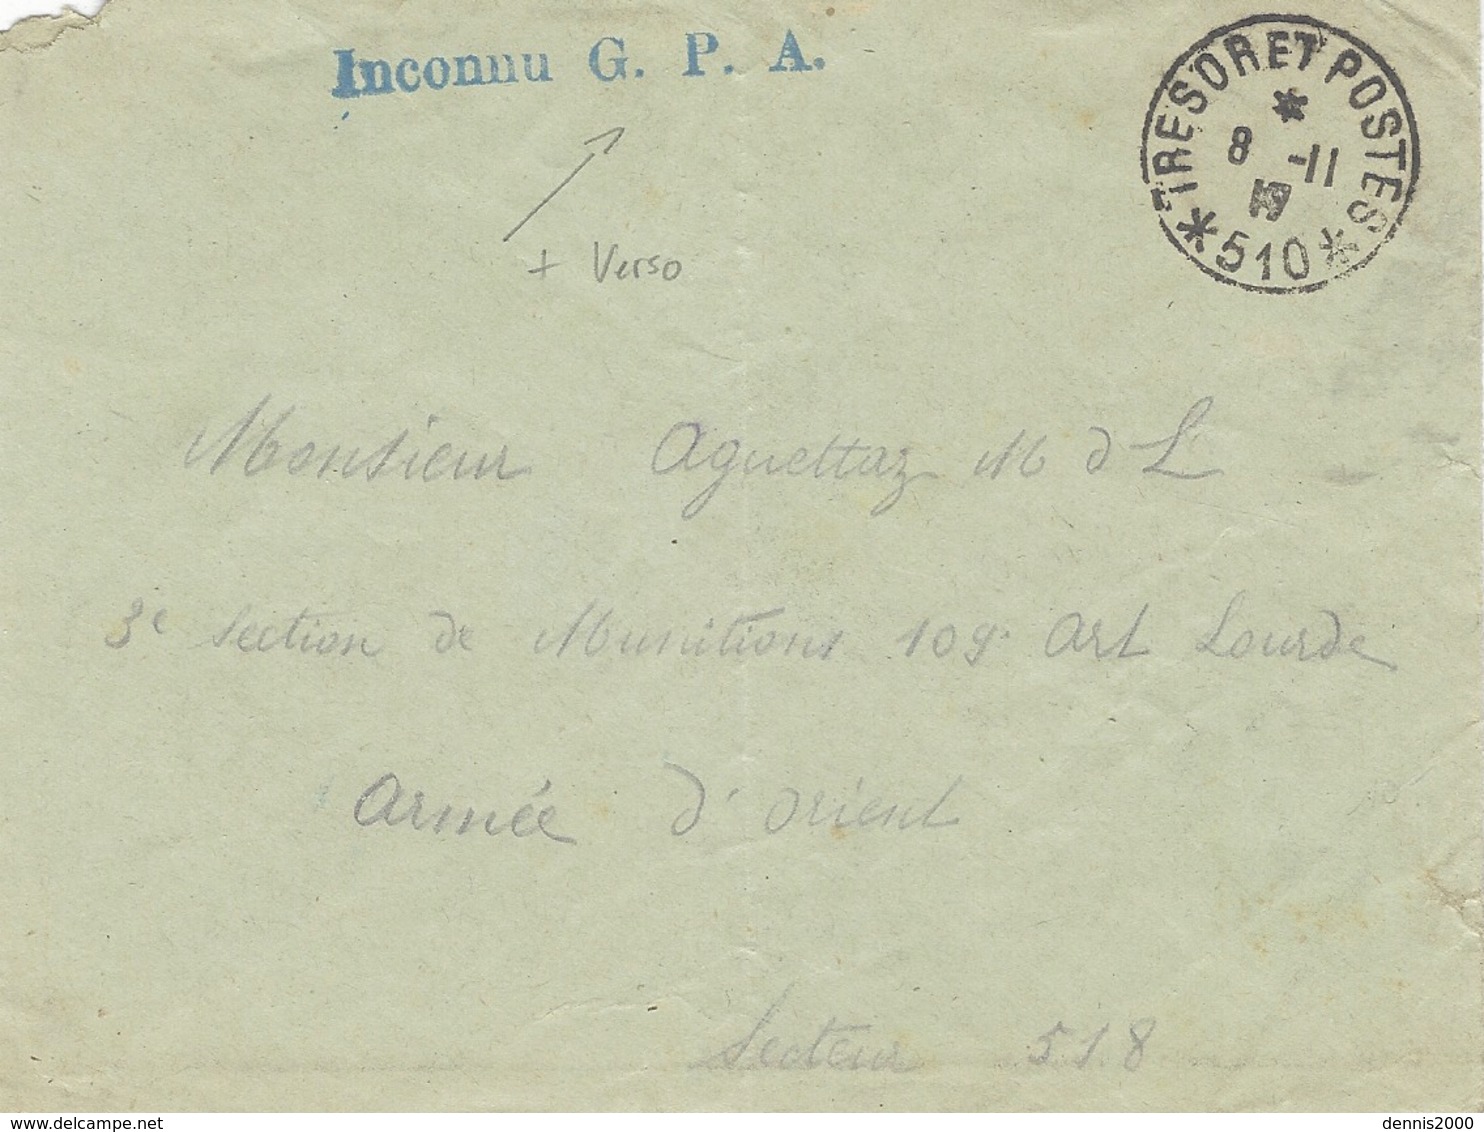 Inconnu G. P. A.
TRESOR ET POSTES
*
8 -11
* 510 *
+ Verso
Monsieur Aguettaz M d L
3e Section de Munitions 109e Art Lourde
Armée d'Orient
Secteur 518
dennis2000